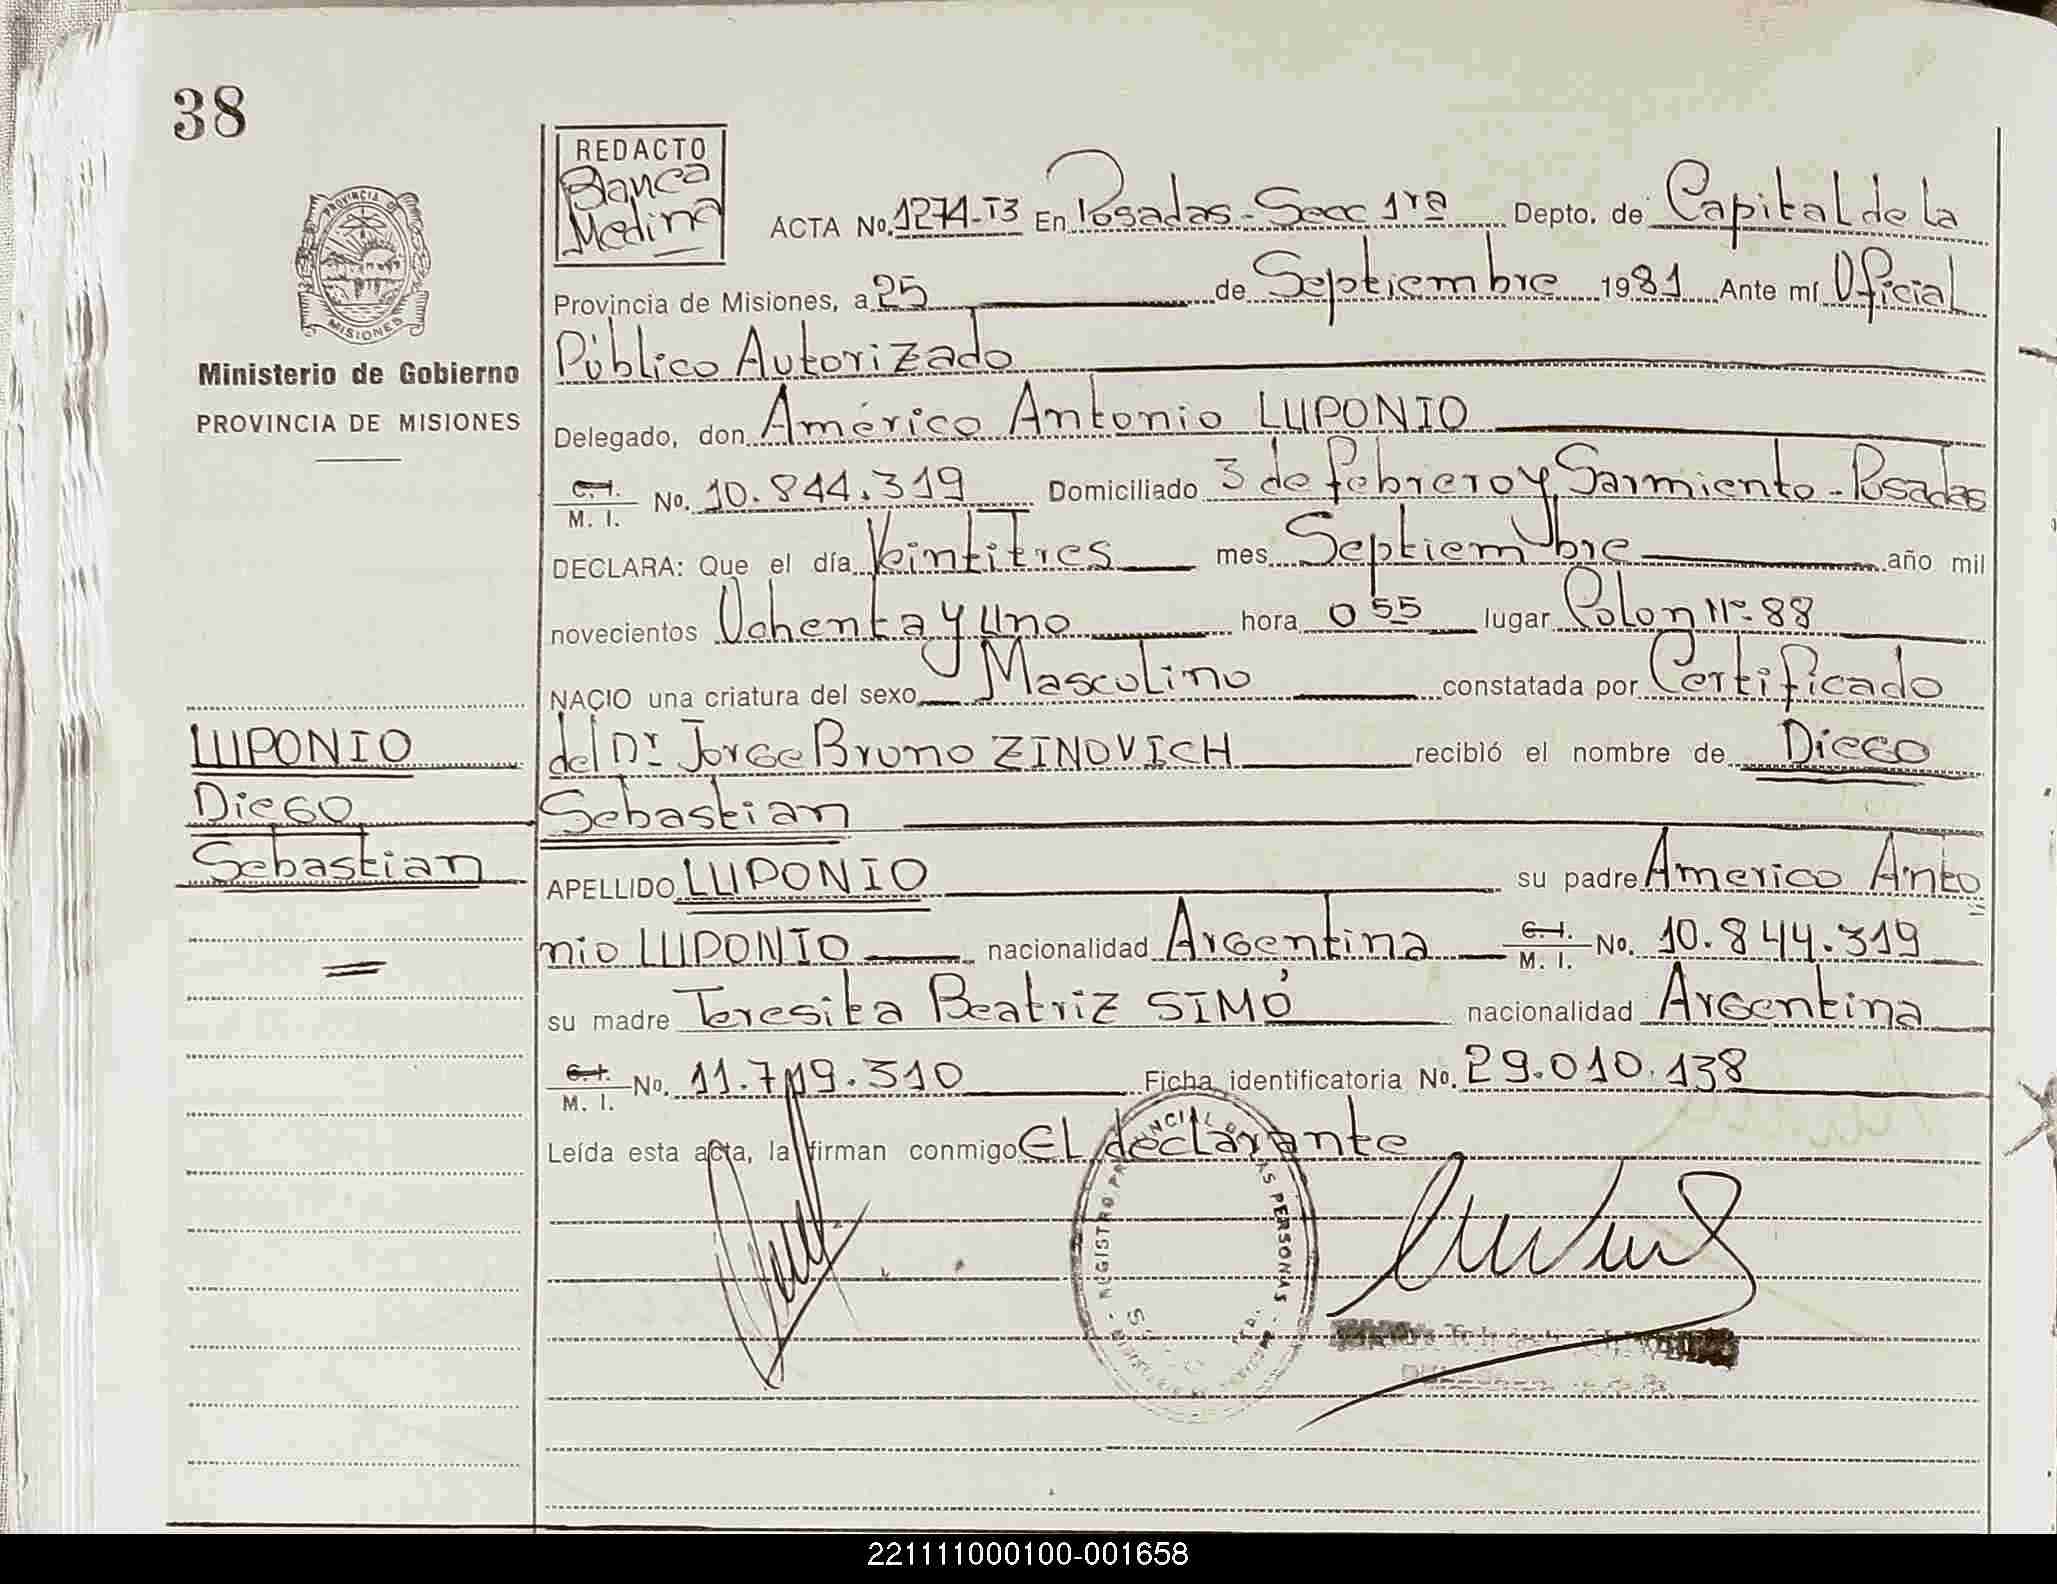 38
REDACTO
Blanca
Medina
PROVINCIA DE
MISIONES
Ministerio de Gobierno
PROVINCIA DE MISIONES
ACTA No. 1274-T3 En Posadas-Secc 1ra Depto. de Capital de la
Provincia de Misiones, a 25 de Septiembre 1981 Ante mí Oficial
Público Autorizado
Delegado, don Américo Antonio LUPONIO
C.I. M.I. No. 10.844.319 Domiciliado 3 de febrero y Sarmiento-Posadas
DECLARA: Que el día Veintitres mes Septiembre año mil
novecientos Ochenta y Uno hora 0 55 lugar Colon Nº 88
NACIO una criatura del sexo Masculino constatada por Certificado
del Dr Jorge Bruno ZINOVICH recibió el nombre de Diego
Sebastian
APELLIDO LUPONIO su padre Americo Anto
nio LUPONIO nacionalidad Argentina C.I. M.I. No. 10.844.319
su madre Teresita Beatriz SIMÓ nacionalidad Argentina
C.I. M.I. No. 11.719.310 Ficha identificatoria No. 29.010.138
Leída esta acta, la firman conmigo El declarante
LUPONIO
Diego
Sebastian
221111000100-001658